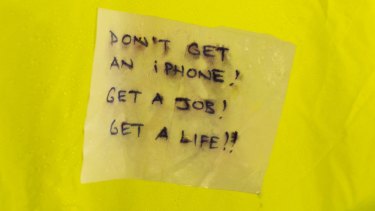 DON'T GET
AN iPHONE!
GET A JOB!
GET A LIFE!!